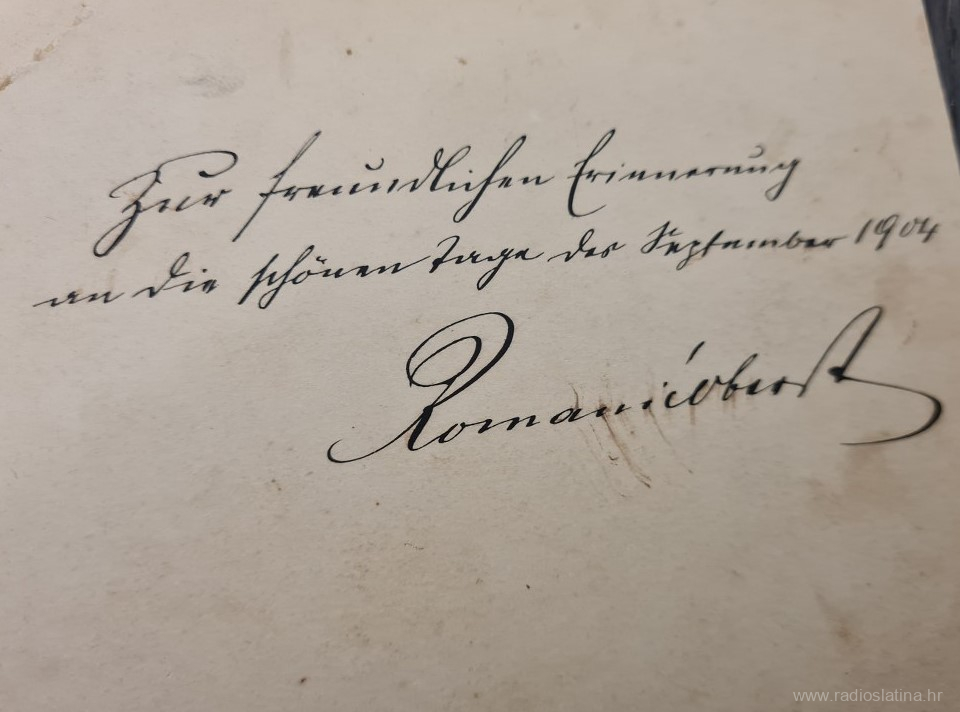 Zur freundlichen Erinnerung
an die schönen Tage des September 1904
Romanić Oberst
www.radioslatina.hr